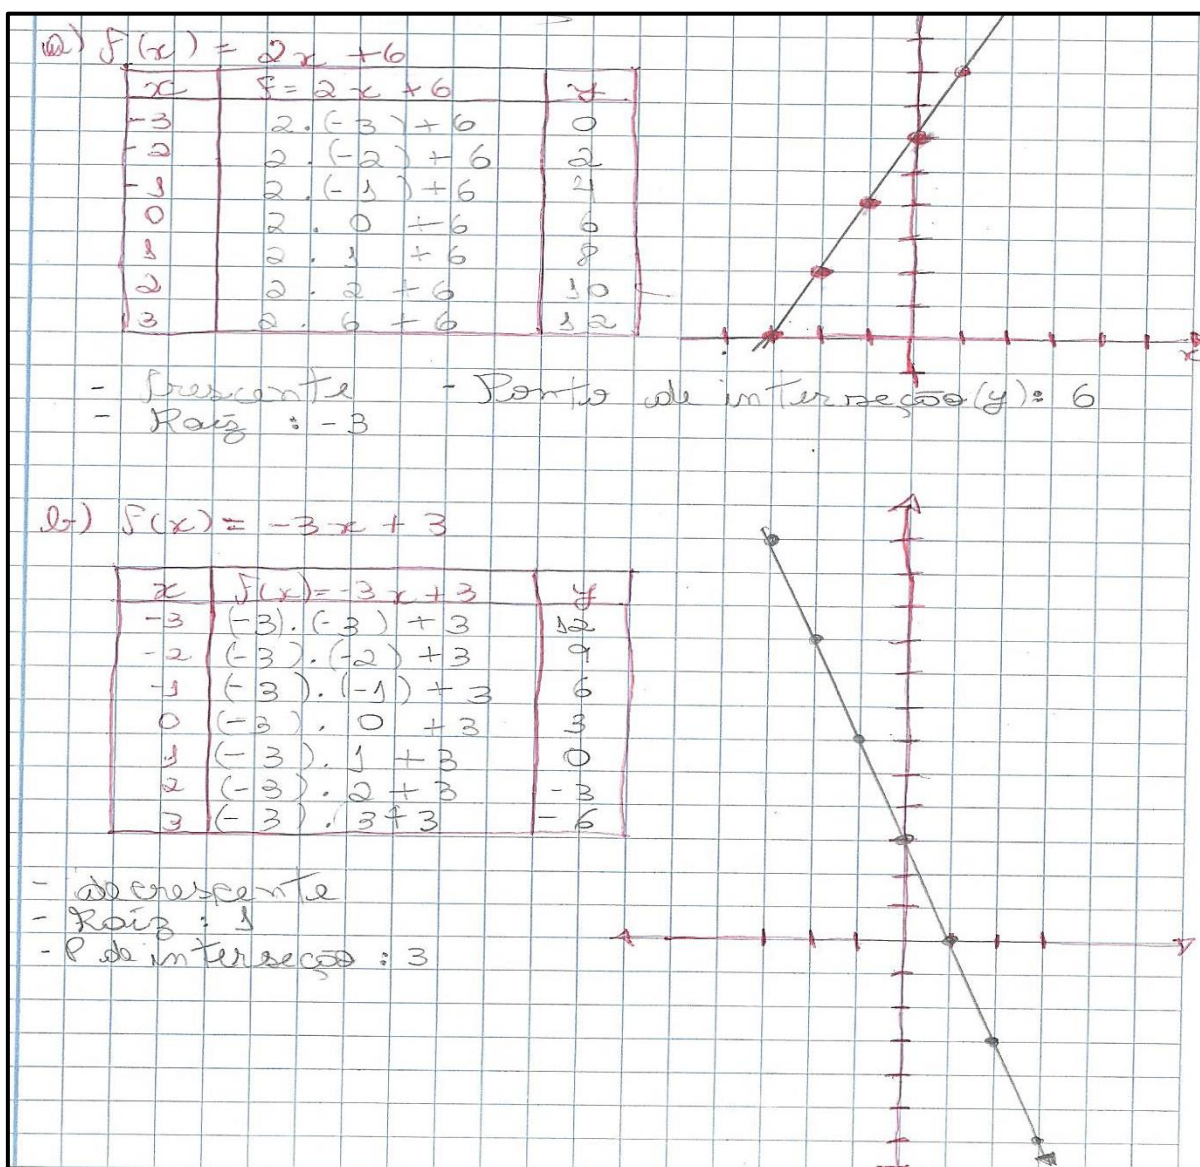 a) f(x) = 2x + 6
x f = 2x + 6 y
-3 2 . (-3) + 6 0
-2 2 . (-2) + 6 2
-1 2 . (-1) + 6 4
0 2 . 0 + 6 6
1 2 . 1 + 6 8
2 2 . 2 + 6 10
3 2 . 6 + 6 12
x
- Crescente - Ponto de interseção (y): 6
- Raiz : -3
b) f(x) = -3x + 3
x f(x) = -3x + 3 y
-3 (-3) . (-3) + 3 12
-2 (-3) . (-2) + 3 9
-1 (-3) . (-1) + 3 6
0 (-3) . 0 + 3 3
1 (-3) . 1 + 3 0
2 (-3) . 2 + 3 -3
3 (-3) . 3 + 3 -6
- decrescente
- Raiz : 1
- P de interseção : 3